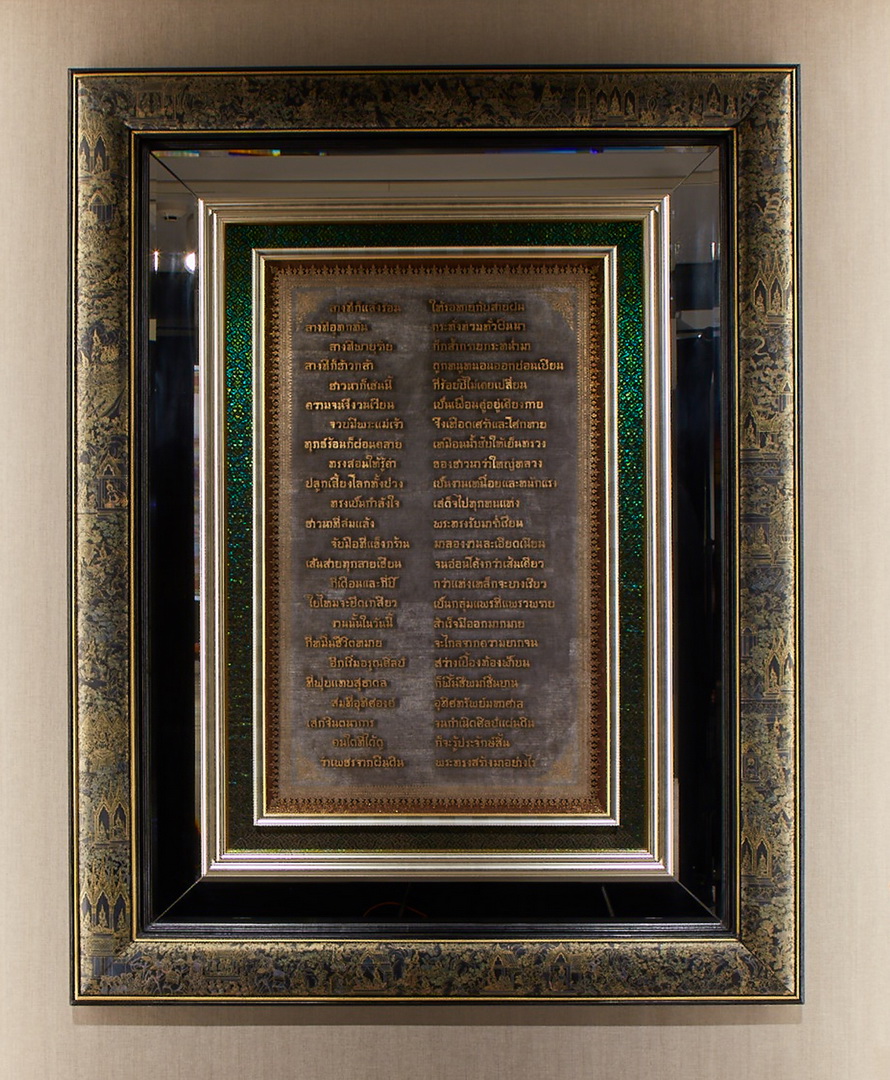 ลางทีก็แล้งร้อน ให้รอทายกับสายฝน
ลางทีอุทกท้น กระทั่งท่วมทั่วผืนนา
ลางทีพายุร้าย
ลางทีก็ข้าวกล้า ถูกหนูหนอนออกบ่อนเบียน
ชาวนาก็เช่นนี้ กี่ร้อยปีไม่เคยเปลี่ยน
ความจนจึงวนเวียน เป็นเพื่อนคู่อยู่เคียงกาย
จวบมีพระแม่เจ้า จึงเหือดเศร้าและโศกหาย
ทุกข์ร้อนก็ผ่อนคลาย เหมือนน้ำรักให้เย็นทรวง
ทรงสอนให้รู้ค่า ของชาวนาว่าใหญ่หลวง
ปลูกเลี้ยงโลกทั้งปวง เป็นงานเหนื่อยและหนักแรง
ทรงเป็นกำลังใจ เสด็จไปทุกหนแห่ง
ชาวนาที่ล่มแล้ง พระทรงรับมาร่ำเรียน
จับมือที่แข็งกร้าน มาลองงานละเอียดเนียน
เส้นสายทุกลายเขียน จนอ่อนโค้งกว่าเส้นเคียว
กี่เดือนและกี่ปี กว่าแท่งเหล็กจะบางเรียว
ใยไหมจะบิดเกลียว เป็นกลุ่มแพรที่แพรวพราย
งานนั้นในวันนี้ สำเร็จมีออกมากมาย
กี่หมื่นชีวิตหมาย จะไกลจากความยากจน
อีกเริ่มอรุณศิลป์ สว่างเบื้องท้องฟ้าบน
ที่ฟุบแทบสุธาดล
สมที่อุทิศองค์ อุทิศทรัพย์มหาศาล
เสกจินตนาการ จนกำเนิดศิลป์แผ่นดิน
คนใดที่ได้ดู ก็จะรู้ประจักษ์สิ้น
ว่าเพชรจากผืนดิน พระทรงสร้างมาอย่างไร